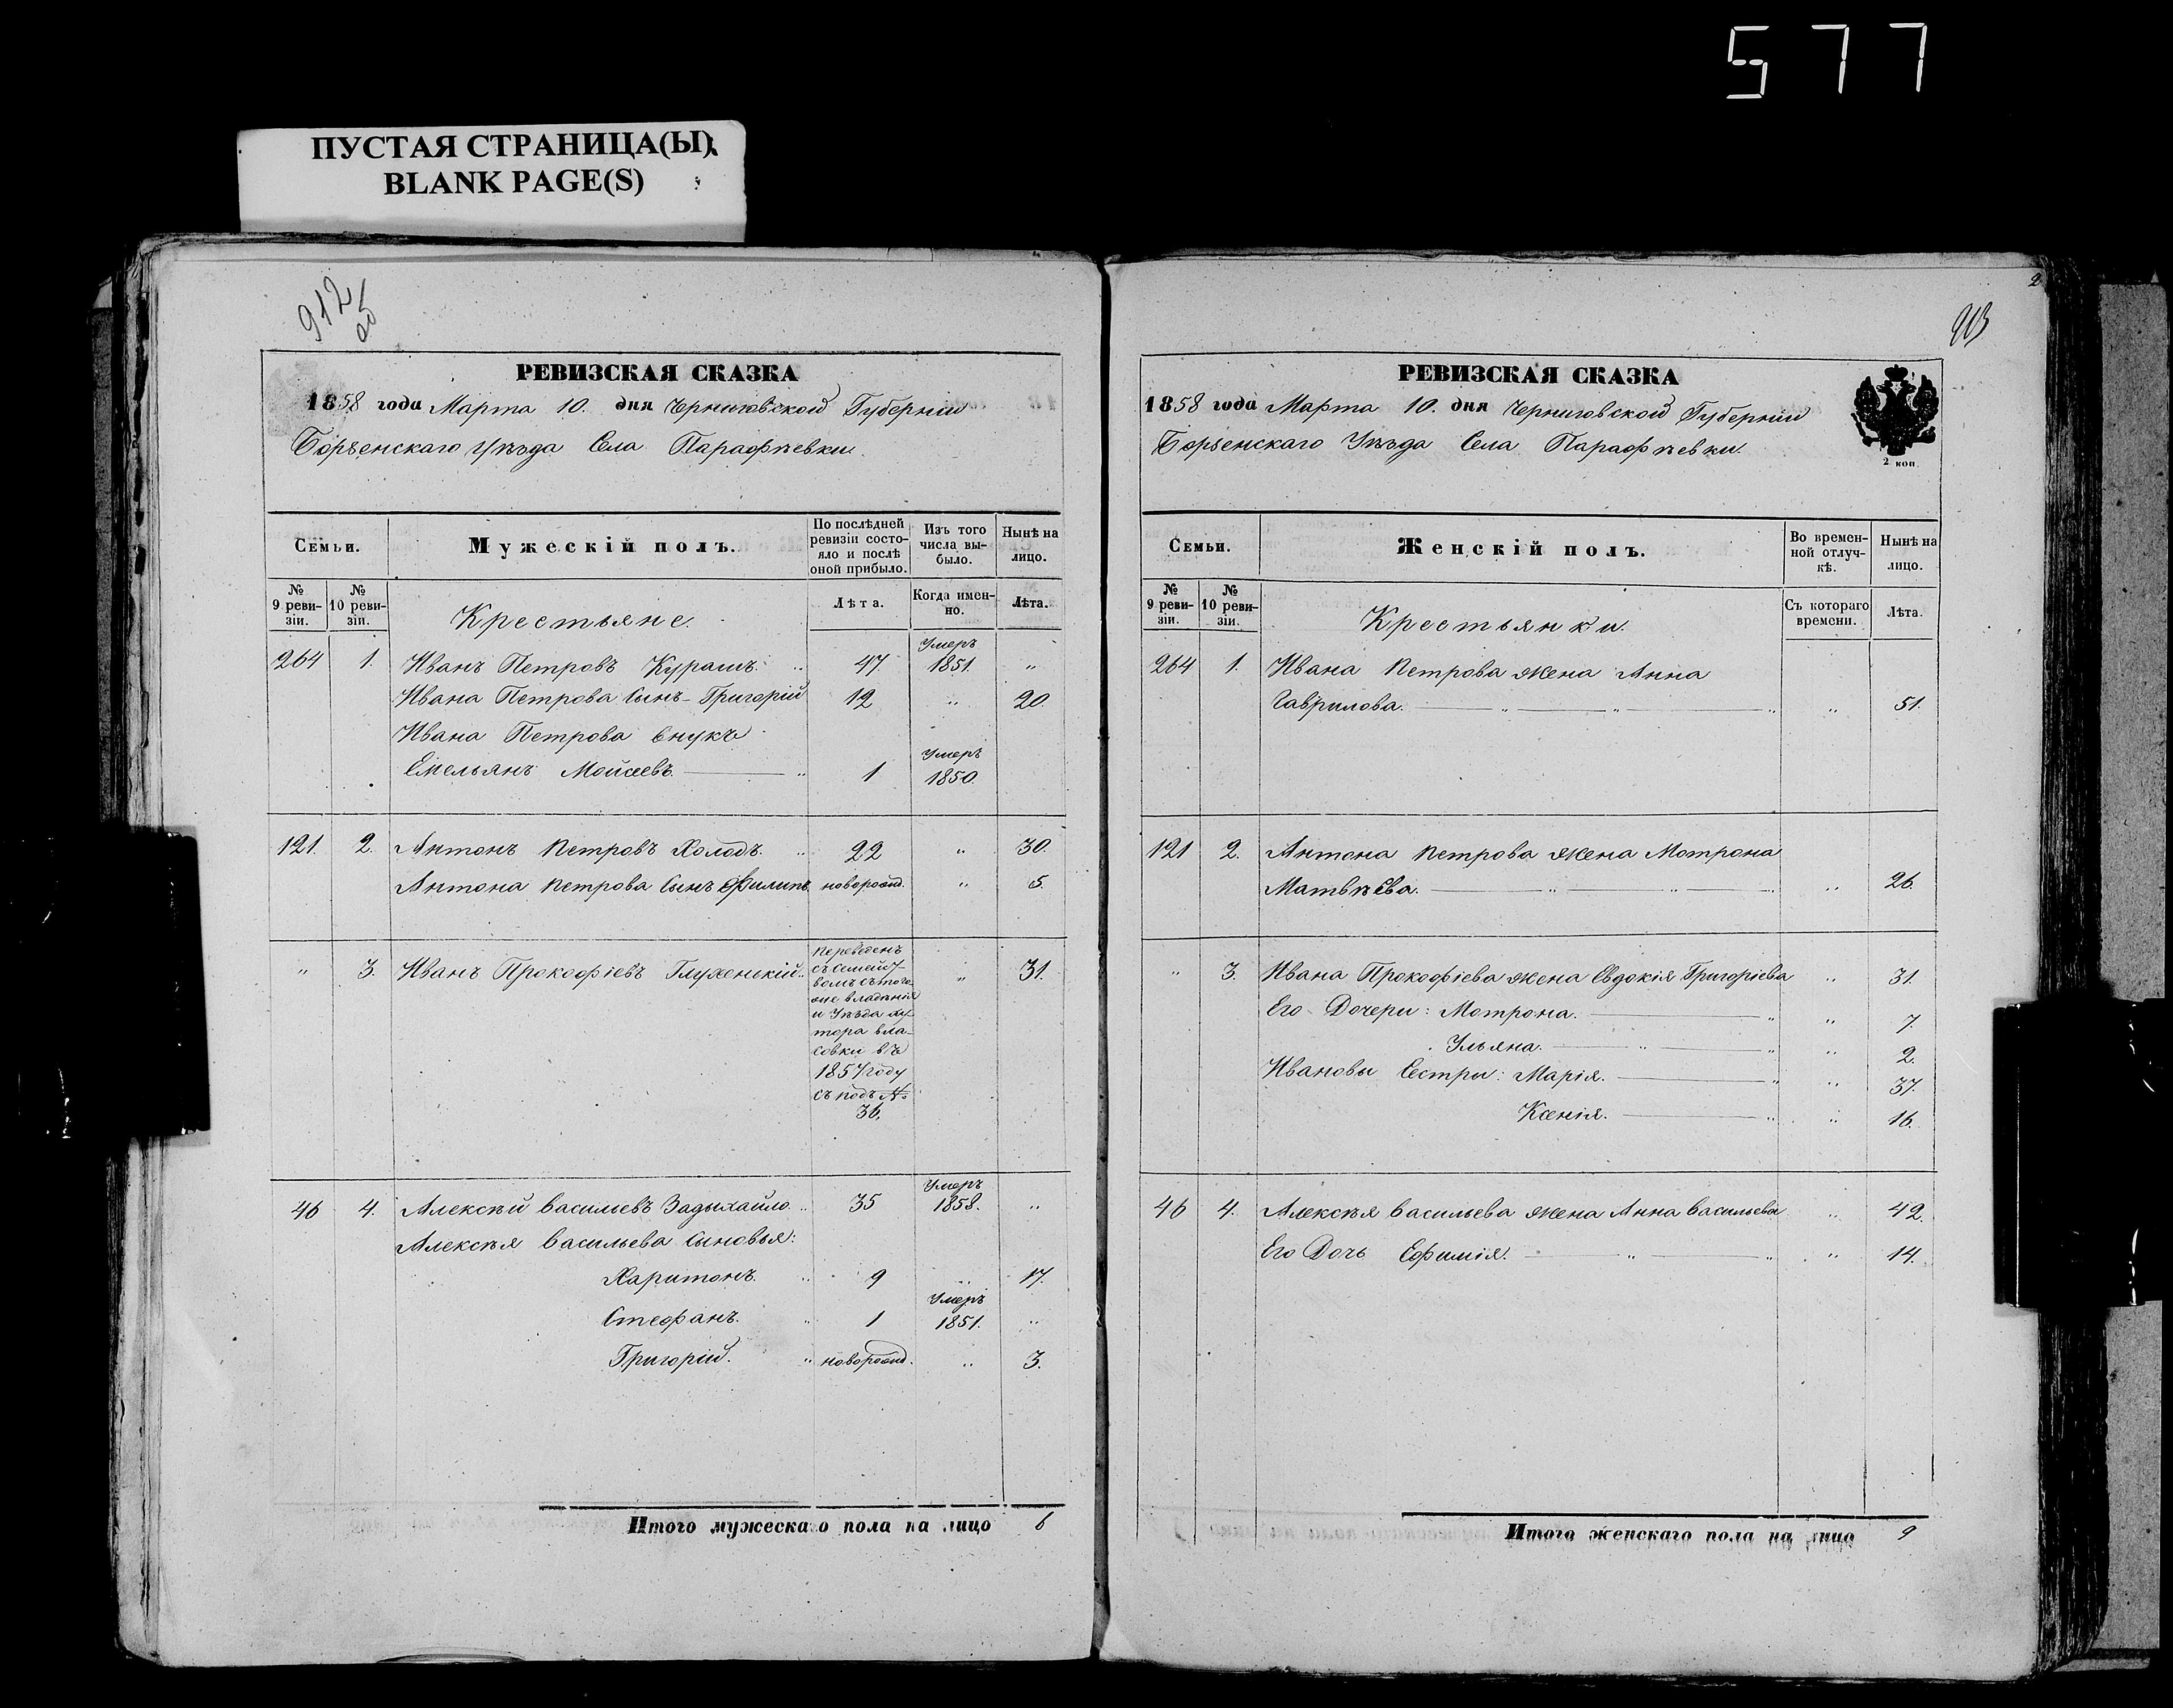 577
ПУСТАЯ СТРАНИЦА(Ы)
BLANK PAGE(S)
912
об
РЕВИЗСКАЯ СКАЗКА
1858 года Марта 10. дня Черниговской Губерніи
Борзенскаго Уѣзда Села Парафѣевки.
Семьи.
Мужескій полъ.
По послѣдней ревизіи состо-
яло и послѣ
оной прибыло.
Изъ того
числа вы-
было.
Нынѣ на
лицо.
№
9 реви-
зіи.
№
10 реви-
зіи.
Крестьяне.
Лѣта.
Когда имен-
но.
Лѣта.
264 1. Иванъ Петровъ Курашъ. „ 47 Умеръ 1851. „
Ивана Петрова Сынъ Григорій 12 „ 20.
Ивана Петрова внукъ
Емельянъ Мойсеевъ. „ 1 Умеръ 1850.
121. 2. Антонъ Петровъ Холодъ. „ 22 „ 30.
Антона Петрова Сынъ Филипъ новорожд. „ 5.
„ 3. Иванъ Прокофіевъ Глуженькій. „ „ 31.
переведенъ
съ Семейст-
вомъ съ того
же владѣнія
и Уѣзда ху-
тора Вла-
совки въ
1857 году
съ подъ №
36.
46 4. Алексѣй Васильевъ Задыхайло. „ 35 Умеръ 1858. „
Алексѣя Васильева Сыновья:
Харитонъ. „ 9 „ 17.
Стефанъ. „ 1 Умеръ 1851. „
Григорій. „ новорожд. „ 3.
Итого мужескаго пола на лицо 6
2
913
РЕВИЗСКАЯ СКАЗКА
1858 года Марта 10. дня Черниговской Губерніи
Борзенскаго Уѣзда Села Парафѣевки.
2 коп.
Семьи.
Женскій полъ.
Во времен-
ной отлуч-
кѣ.
Нынѣ на
лицо.
№
9 реви-
зіи.
№
10 реви-
зіи.
Крестьянки.
Съ котораго
времени.
Лѣта.
264 1. Ивана Петрова жена Анна
Гаврилова. „ „ „ „ 51.
121 2. Антона Петрова жена Мотрона
Матвѣева. „ „ „ „ 26.
„ 3. Ивана Прокофіева жена Евдокія Григоріева „ 31.
Его Дочери: Мотрона. „ „ 7.
Ульяна. „ „ „ 2.
Ивановы Сестры: Марія. „ „ 37.
Ксенія. „ „ 16.
46 4. Алексѣя Васильева жена Анна Васильева „ 42.
Его Дочь Ефимія. „ „ „ 14.
Итого женскаго пола на лицо 9